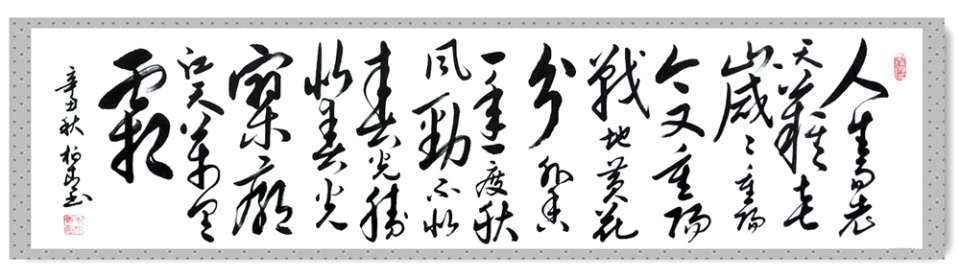 人生易老
天難老
歲々重陽
今又重陽
戰地黄花
分外香
一年一度秋
風勁不似
春光勝
似春光
寥廓
江天萬里
霜
辛丑秋